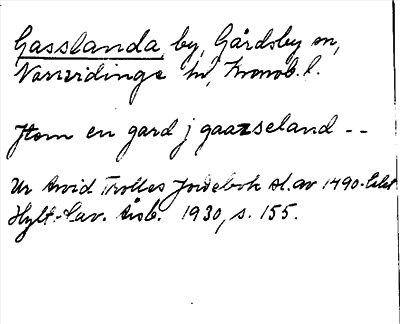 Gasslanda, by, Gårdsby sn,
Norrvidinge hd, Kronob. l.
Jtem en gard j gaazseland --
Ur Arvid Trolles Jordebok sl. av 1490-talet
Hylt.-Cav. Årsb. 1930, s. 155.